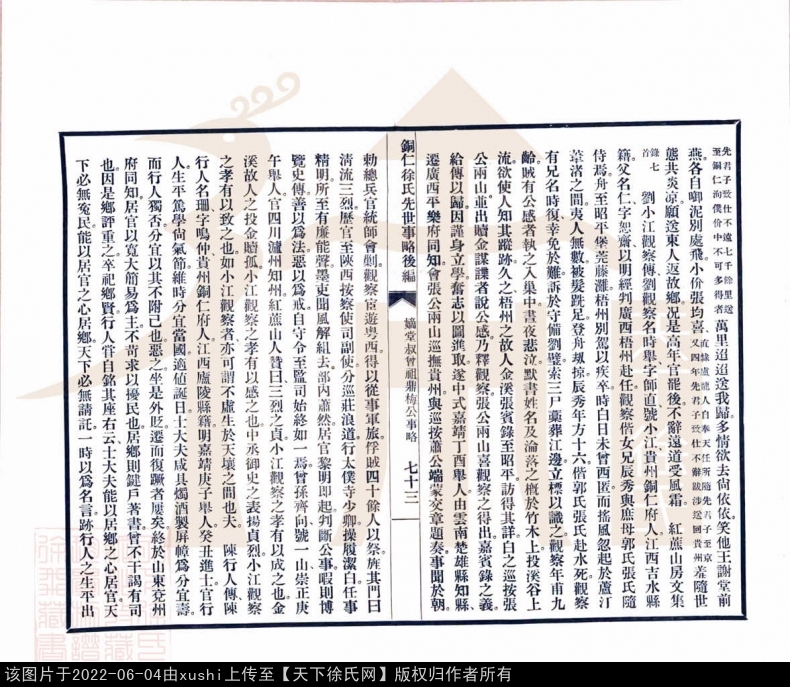 先君子致仕不遠七千餘里送
至銅仁洵僕价中不可多得者
萬里迢迢送我歸多情欲去尙依依笑他王謝堂前
燕各自啣泥別處飛小价張均喜
直隸盧龍人自奉天任所隨先君子至京
又四年先君子致仕不辭跋涉送回貴州
羞隨世
態共炎凉願送東人返故鄉况是高年官罷後不辭遠道受風霜 紅蕉山房文集
錄七
首
劉小江觀察傳劉觀察名時舉字師直號小江貴州銅仁府人江西吉水縣
籍父名仁字恕齋以明經判廣西梧州赴任觀察偕女兄辰秀與庶母郭氏張氏隨
侍焉舟至昭平堡莞藤灘梧州別駕以疾卒時白日未曾西匿而搖風忽起於蘆汀
葦渚之間夷人無數被髮跣足登舟刼掠辰秀年方十六偕郭氏張氏赴水死觀察
有兄名時復幸免於難訴於守備劉璧索三尸藁葬江邊立標以識之觀察年甫九
齡賊有公感者執之入巢中晝夜悲泣默書姓名及淪落之概於竹木上投溪谷上
流欲使人知其蹤跡久之梧州之故人金溪張賓錄至昭平訪得其詳白之巡按張
公兩山並出贖金謀諜者說公感乃釋觀察張公兩山喜觀察之得出嘉賓錄之義
給傳以歸因謹身立學奮志以圖進取遂中式嘉靖丁酉舉人由雲南楚雄縣知縣
遷廣西平樂府同知會張公兩山巡撫貴州與巡按蕭公端蒙交章題奏事聞於朝
銅仁徐氏先世事略後編 嫡堂叔曾祖鼎梅公事略 七十三
勅總兵官統師會剿觀察宦遊粤西得以從事軍旅俘賊四十餘人以祭旌其門曰
淸流三烈歷官至陝西按察使司副使分巡莊浪道行太僕寺少卿操履潔白任事
精明所至有廉能聲墨吏聞風解組去部內肅然居官黎明即起判斷公事暇則博
覽史傳善以爲法惡以爲戒自守令至監司始終如一焉曾孫齊向號一山崇正庚
午舉人官四川瀘州知州紅蕉山人贊曰三烈之貞小江觀察之孝有以成之也金
溪故人之投金贖孤小江觀察之孝有以感之也中丞御史之表揚貞烈小江觀察
之孝有以致之也如小江觀察者亦可謂不虛生於天壤之間也夫 陳行人傳陳
行人名珊字鳴仲貴州銅仁府人江西廬陵縣籍明嘉靖庚子舉人癸丑進士官行
人生平篤學尙氣節維時分宜當國適値誕日士大夫咸具燭酒製屏幛爲分宜壽
而行人獨否分宜以其不附己也惡之坐是外貶遷而復蹶者屢矣終於山東兗州
府同知居官以寬大簡易爲主不苛求以擾民也居鄉則鍵戶著書曾不干謁有司
也因是鄉評重之卒祀鄉賢行人嘗自銘其座右云士大夫能以居鄉之心居官天
下必無寃民能以居官之心居鄉天下必無請託一時以爲名言跡行人之生平出
该图片于2022-06-04由xushi上传至【天下徐氏网】版权归作者所有